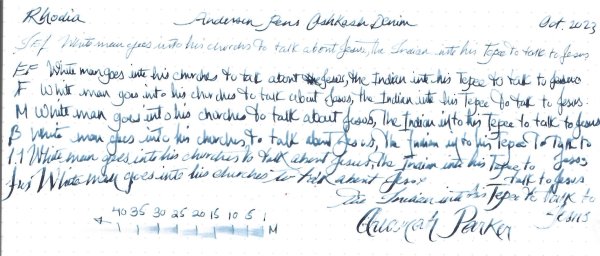 Rhodia Anderson Pens Ashkash Denim Oct. 2023
JEF White man goes into his churches to talk about Jesus, the Indian into his Tepee to talk to Jesus
EF White man goes into his churches to talk about Jesus, the Indian into his Tepee to talk to Jesus
F White man goes into his churches to talk about Jesus, the Indian into his Tepee to talk to Jesus.
M White man goes into his churches to talk about Jesus, The Indian into his Tepee to talk to Jesus
B White man goes into his churches, to talk about Jesus, The Indian into his Tepee To Talk to
1.1 White man goes into his churches to talk about Jesus, the Indian into his Tepee to Jesus
White man goes into his churches to talk about Jesus talk to Jesus
The Indian into his Tepee to talk to
Jesus
40 35 30 25 20 15 10 5 1
M
Parker